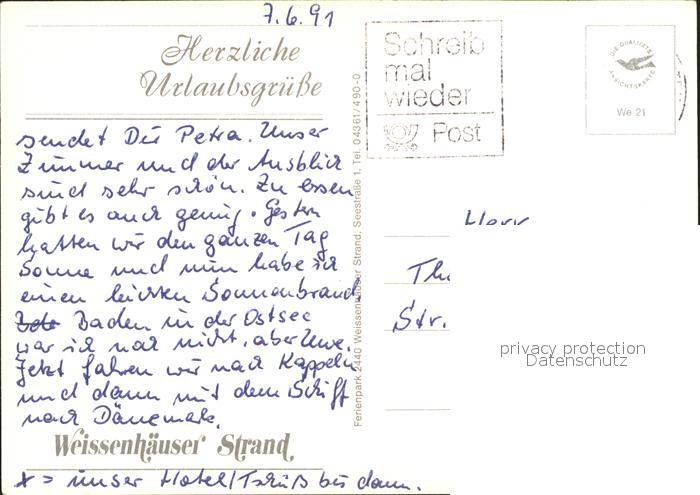 7.6.91
Herzliche
Urlaubsgrüße
sendet Dir Petra. Unser
Zimmer und der Ausblick
sind sehr schön. Zu essen
gibt es auch genug. Gestern
hatten wir den ganzen Tag
Sonne und nun habe ich
einen leichten Sonnenbrand.
Baden in der Ostsee
war ich noch nicht, aber Uwe.
Jetzt fahren wir nach Kappeln
und dann mit dem Schiff
nach Dänemark.
Weissenhäuser Strand
x = unser Hotel/Tschüß bis dann.
Ferienpark 2440 Weissenhäuser Strand, Seestraße 1, Tel. 04361/490-0
Schreib
mal
wieder
Post
DIE QUALITÄTS
ANSICHTSKARTE
We 21
Herr
Th
Str.
privacy protection
Datenschutz